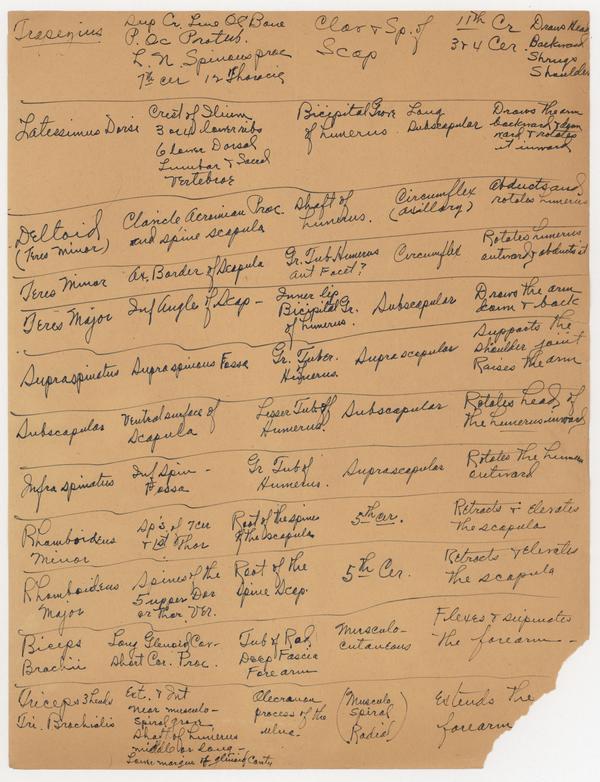 Trasezius
Sup Cr Line Oc Bone
P. Oc Protub.
L. N. Spinous proc
7th cer 12 Thoracic
Clav & Sp. of
Scap
11th Cr
3 & 4 Cer.
Draws Head
Backward
Shrugs
Shoulder
Latessimus Dorsi
Crest of Ilium
3 or 4 lower ribs
6 lower Dorsal
Lumbar & Sacral
Vertebrae
Bicipital Grove
of Humerus
Long
Subscapular
Draws the arm
backward & down
ward & rotates
it inward
Deltoid
(Teres Minor)
Clavicle Acromian Proc.
and spine scapula
Shaft of
Humerus.
Circumflex
(axillary)
Abducts and
rotates humerus
Teres Minor
Ax. Border of Scapula
Gr. Tub Humerus
ant Facet?
Circumflex
Rotates humerus
outward & abducts it
Teres Major
Inf Angle of Scap -
Inner lip
Bicipital Gr.
of humerus.
Subscapular
Draws the arm
down & back
Supraspinatus
Supra spinous Fossa
Gr. Tuber. of
Humerus.
Suprascapular
Supports the
shoulder joint
Raises the arm
Subscapular
Ventral surface of
Scapula
Lesser Tub of
Humerus.
Subscapular
Rotates head of
the humerus inward
Infra spinatus
Inf Spin -
Fossa
Gr Tub of
Humerus.
Suprascapular
Rotates the humerus
outward
Rhamboideus
Minor
Sp's of 7 cer
& 1st Thor
Root of the spine
of the scapula
5th cer.
Retracts & Elevates
the scapula
Rhomboideus
Major
Spines of the
5 upper Dor
or Thor Ver.
Root of the
Spine Scap.
5th Cer.
Retracts & elevates
the scapula
Biceps
Brachii
Long Glenoid Cav-
Short Cor. Proc.
Tub of Rad.
Deep Fascia
Forearm
Musculo-
cutaneous
Flexes & supinates
the forearm -
Triceps 3 heads
Tri. Brachialis
Ext. & Int
near musculo-
spiral grov
Shaft of Humerus
middle or long -
Lower margin of glenoid Cavity
Olecranan
process of the
ulna.
(Musculo
spiral
Radial)
Extends the
forearm